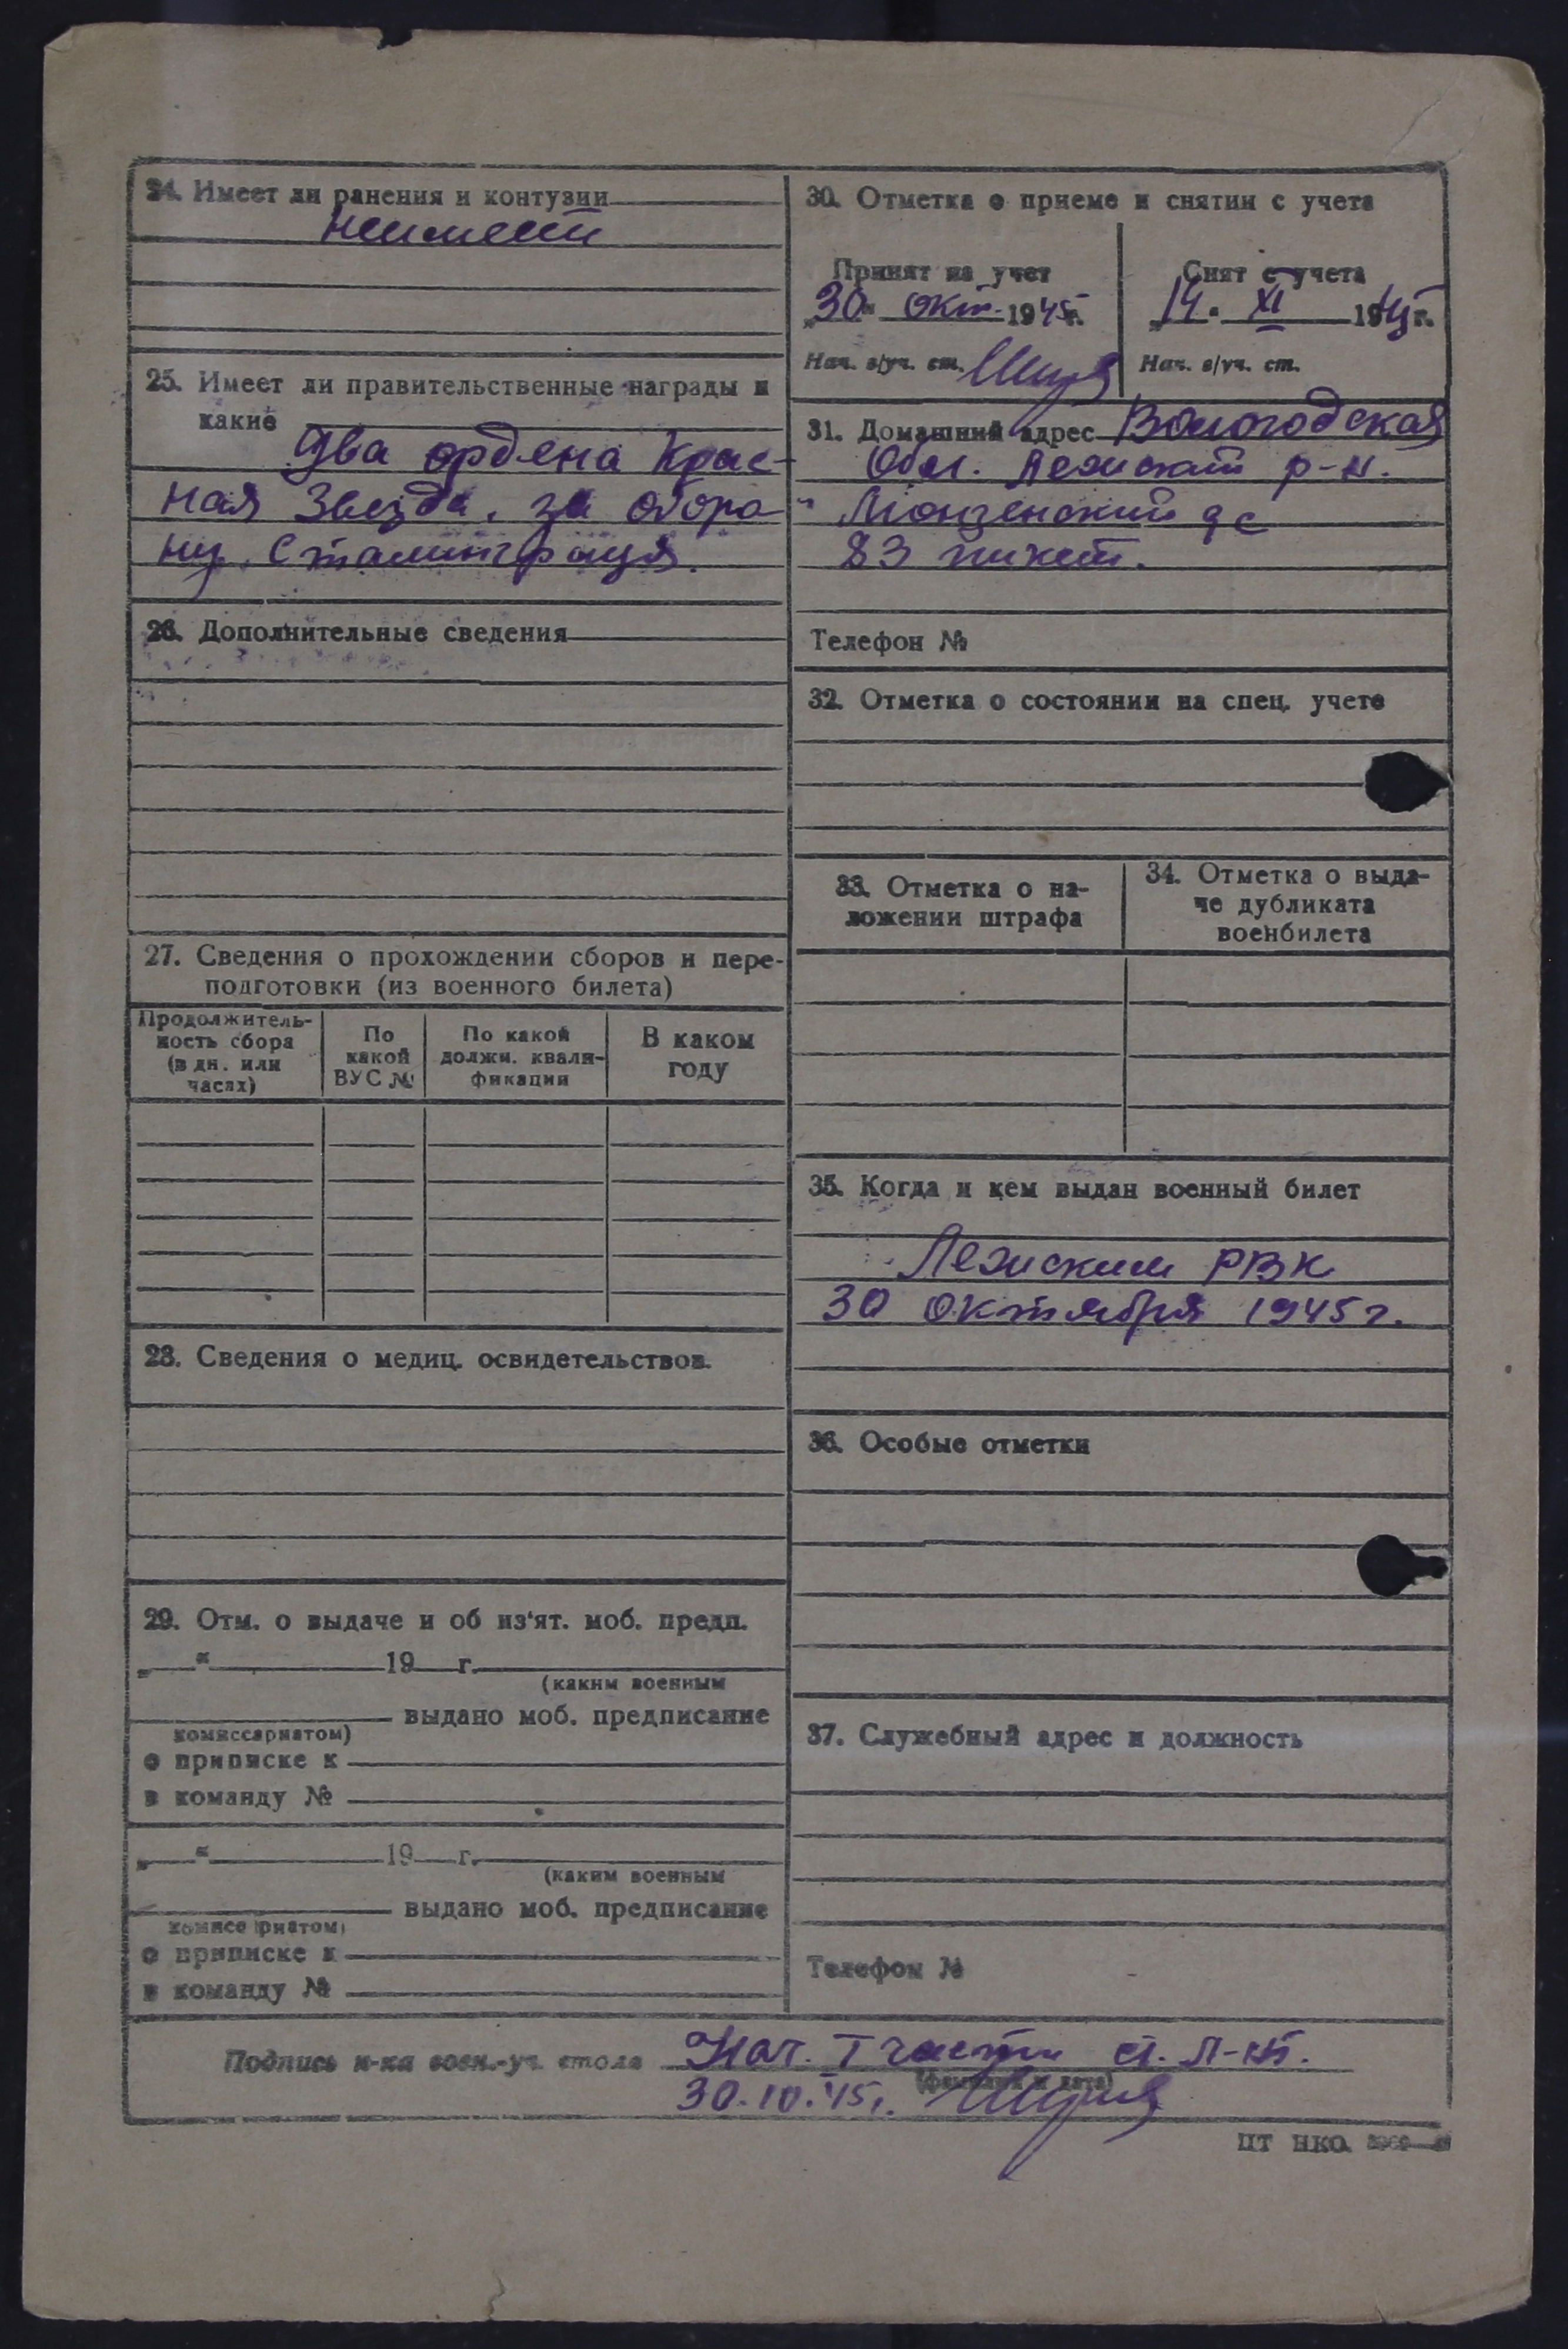 24. Имеет ли ранения и контузии
неимеет
25. Имеет ли правительственные награды и
какие
Два ордена Крас-
ная Звезда, за оборо
ну. Сталинграда.
26. Дополнительные сведения
27. Сведения о прохождении сборов и пере-
подготовки (из военного билета)
Продолжитель-
ность сбора
(в дн. или
часах)
По
какой
ВУС №
По какой
должн. квали-
фикации
В каком
году
28. Сведения о медиц. освидетельствов.
29. Отм. о выдаче и об из'ят. моб. предп.
„ “ 19 г.
(каким военным
выдано моб. предписание
комиссариатом)
о приписке к
в команду №
„ “ 19 г.
(каким военным
выдано моб. предписание
комиссариатом)
о приписке к
в команду №
30. Отметка о приеме и снятии с учета
Принят на учет
„30“ окт. 1945г.
Нач. в/уч. ст.
Снят с учета
„14. XI 1945г.
Нач. в/уч. ст.
31. Домашний адрес Вологодская
Обл. Лежский р-н.
Монзенский
83 пикет.
Телефон №
32. Отметка о состоянии на спец. учете
33. Отметка о на-
ложении штрафа
34. Отметка о выда-
че дубликата
военбилета
35. Когда и кем выдан военный билет
Лежским РВК
30 октября 1945г.
36. Особые отметки
37. Служебный адрес и должность
Телефон №
Подпись н-ка воен.-уч. стола Нач. I части ст. л-нт.
(фамилия и дата)
30.10.45г.
ЦТ НКО.